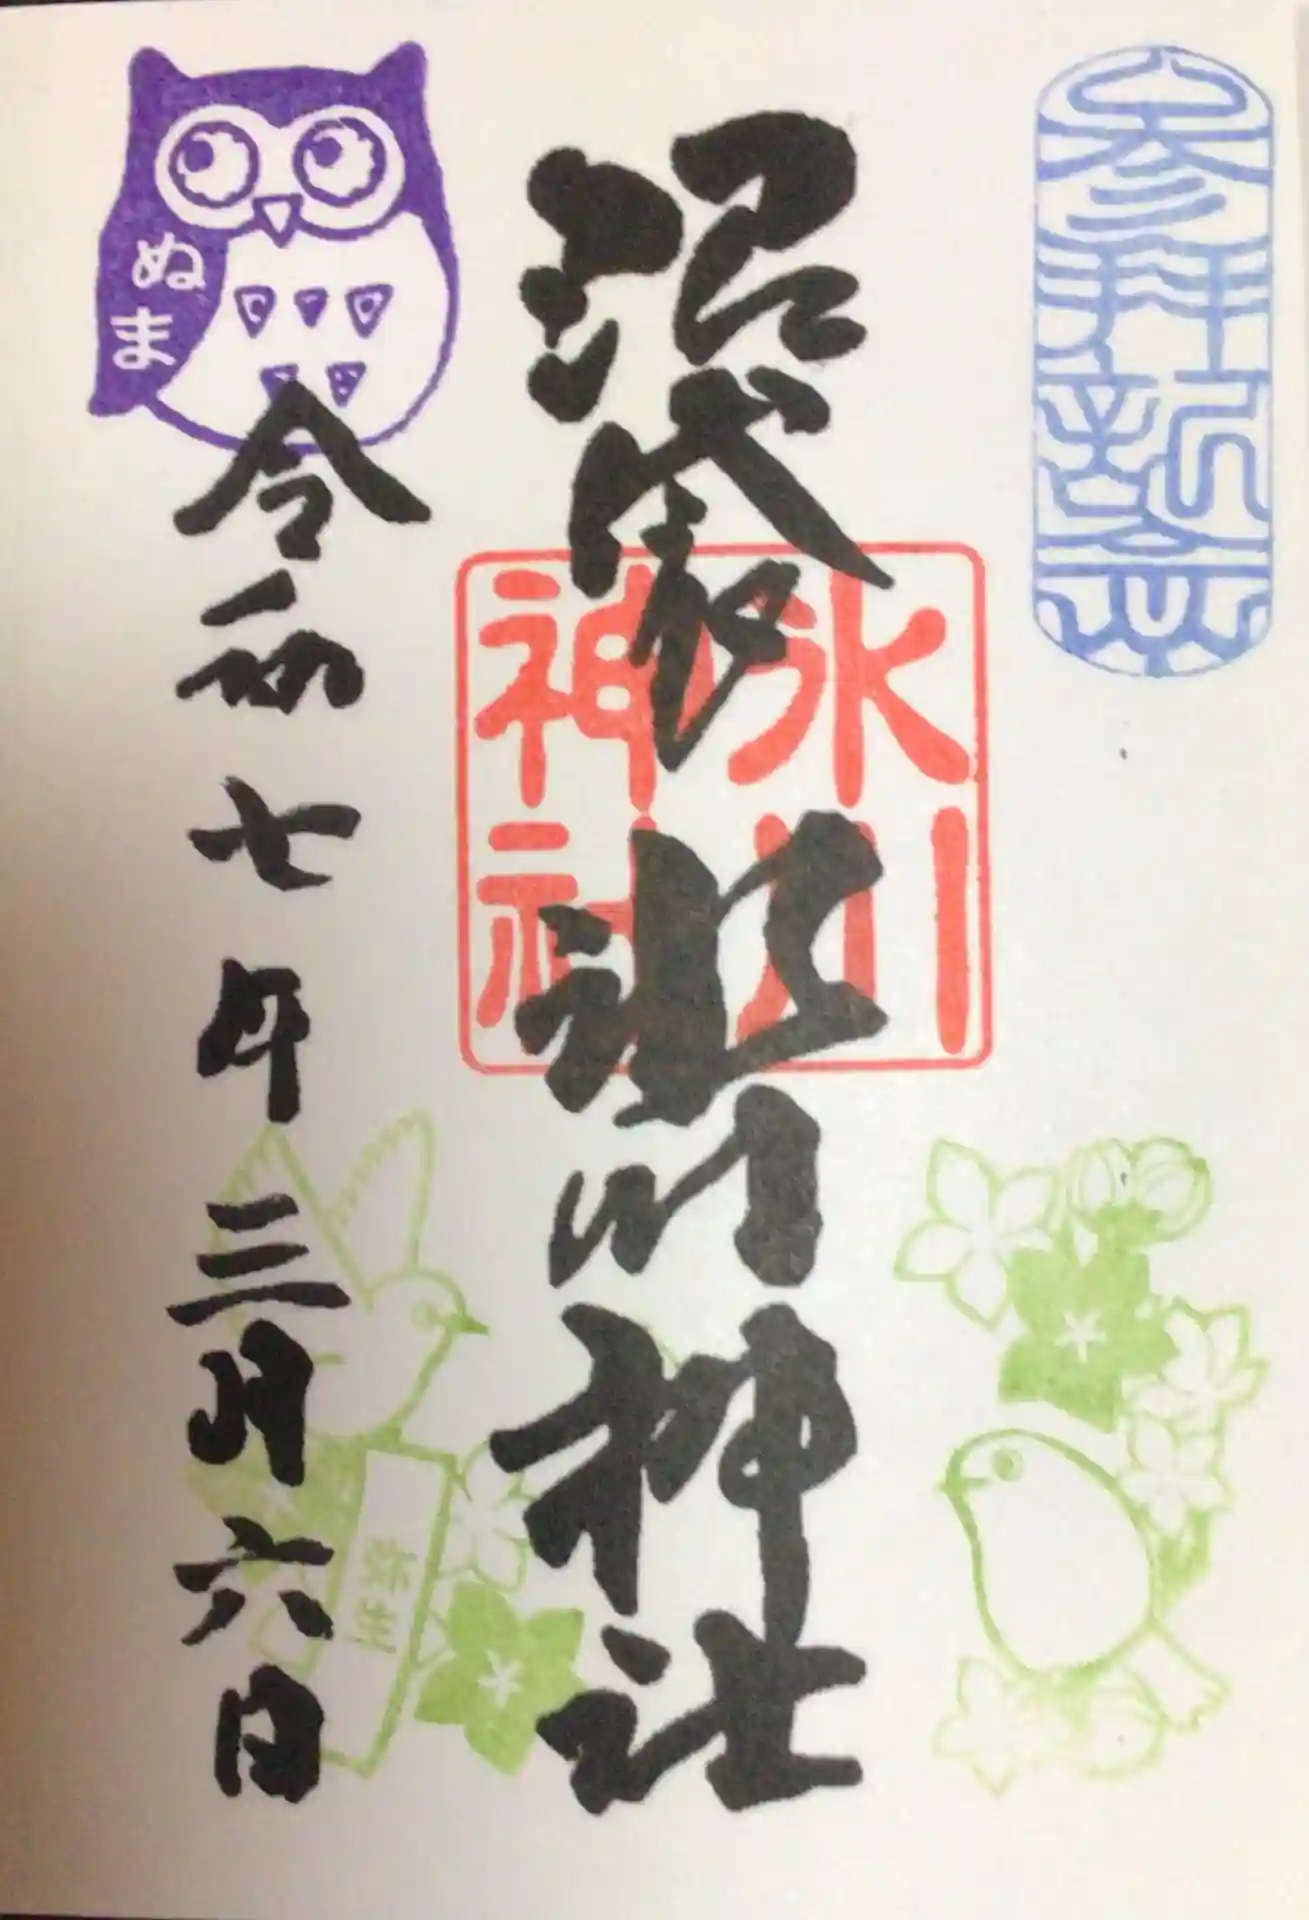 参拝記念
沼袋氷川神社
氷川
神社
ぬま
令和七年三月六日
弥生